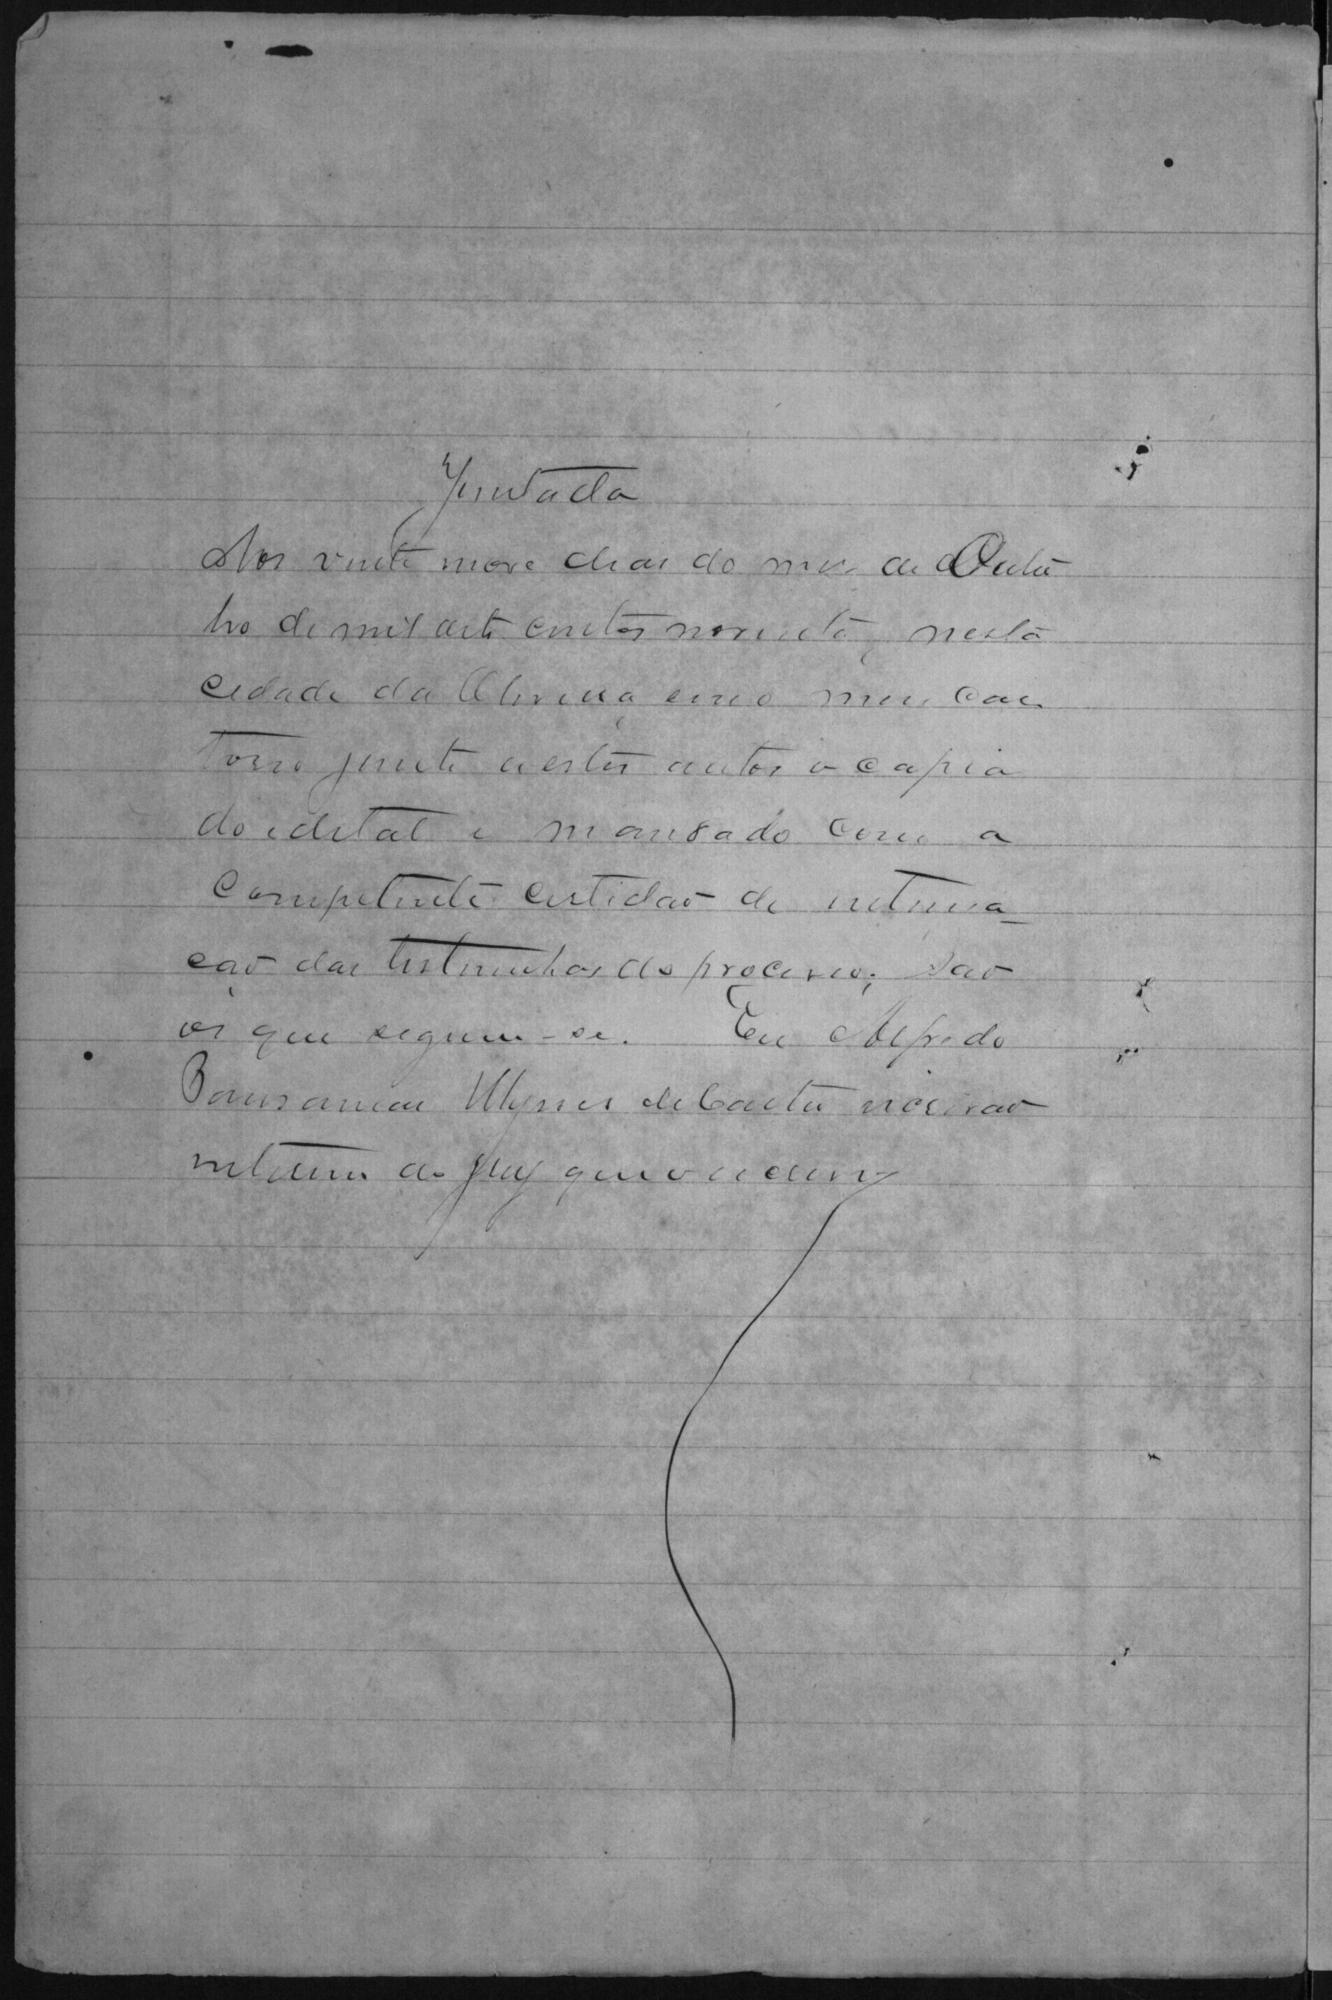 Juntada
Aos vinte nove dias do mes de Outu
bro de mil oito centos noventa, nesta
cidade da Oliveira em o meu car
torio junto a estes autos a copia
do edital e mandado com a
competente certidaõ de intima-
çaõ das testimunhas do processo; saõ
os que seguem-se. Eu Alfredo
Pausanias Ulysses de Castro escrivaõ
interino do jury que o escrevy